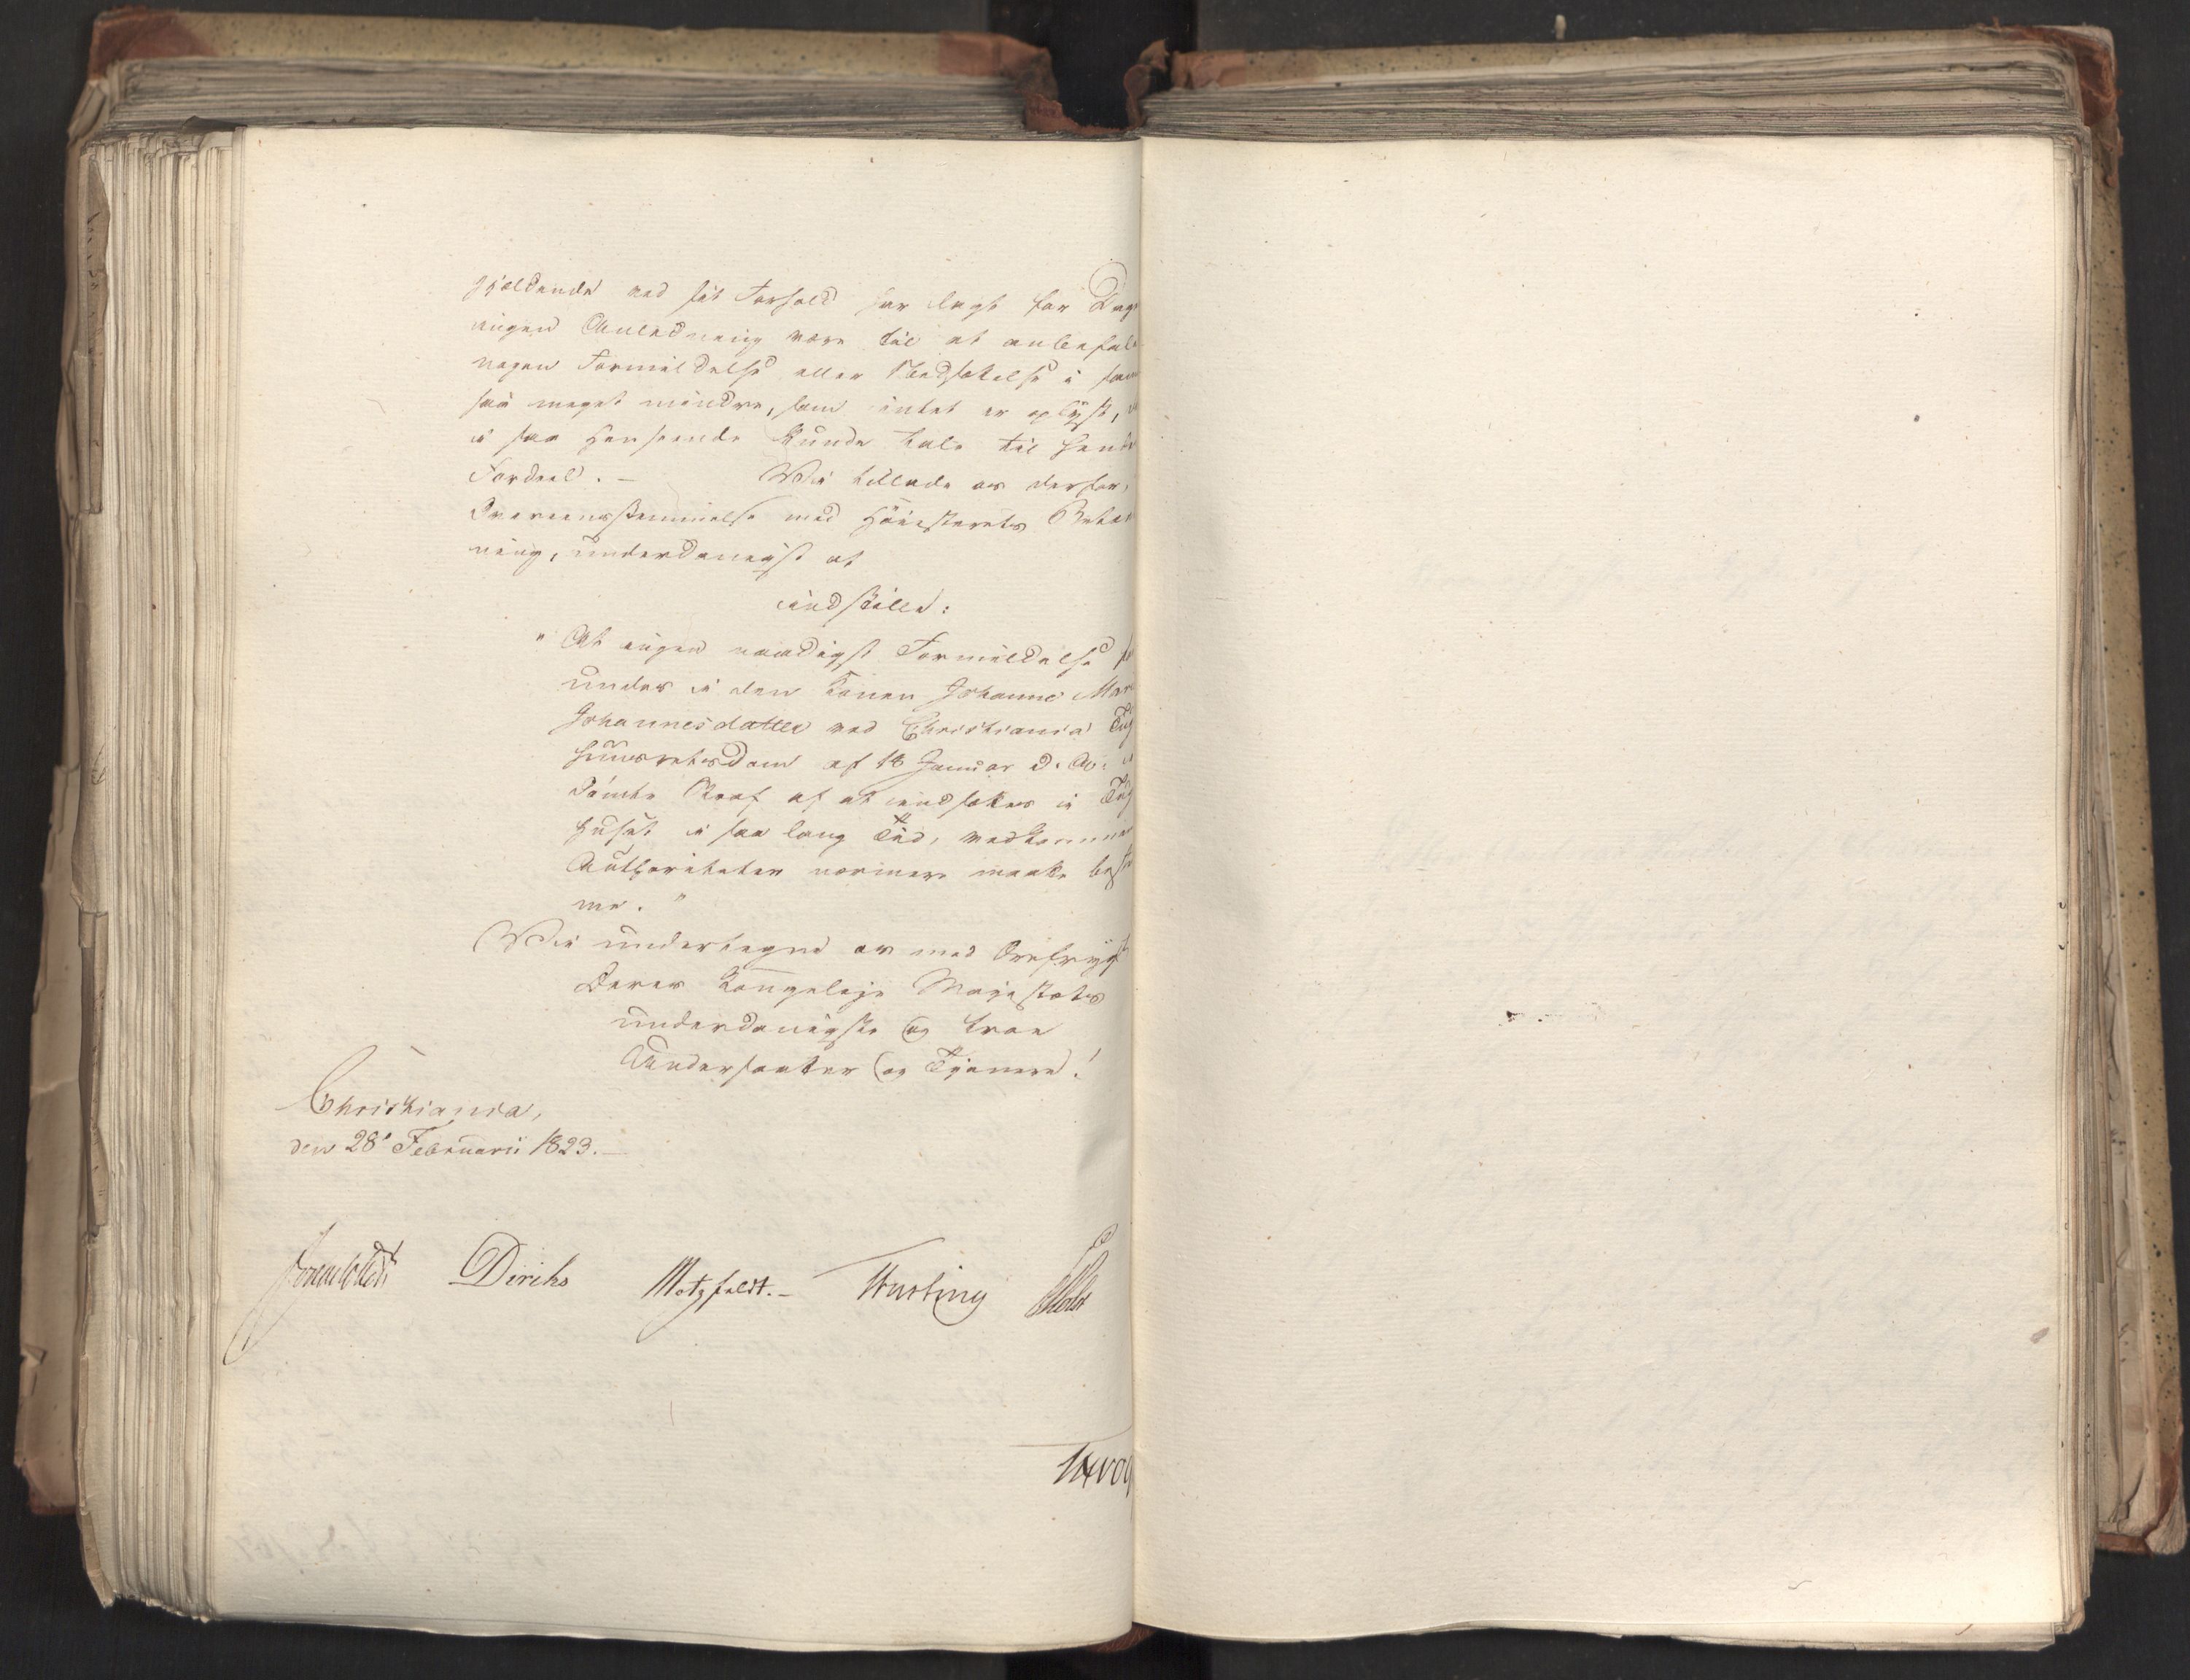 gjældende ved sit Forhold har lagt for Dag
ingen Anledning være til at anbefale
nogen Formildelse eller Nedsættelse i
saa meget mindre, som intet er oplyst,
i saa Henseende kunde tale til hendes
Fordeel. — Vi tillade os derfor,
Overeensstemmelse med Høiesterets Betæn
ning, underdanigst at
indstille:
" At ingen naadigst Formildelse
undes i den Konen Johanne Mar
Johannesdatter ved Christiania Tug
huusretsdom af 18 Januar d. A. i
dømte Straf af at indsættes i Tug
huset i saa lang Tid, vedkommen
Authoriteter nærmere maatte bestem
me. "
Vi undertegne os med Ærefrygt
Deres Kongelige Majestæts
underdanigste og troe
Undersaatter og Tjenere!
Christiania,
den 28' Februarii 1823. —
Sommerhielm Diriks Motzfeldt. — Fasting Holst